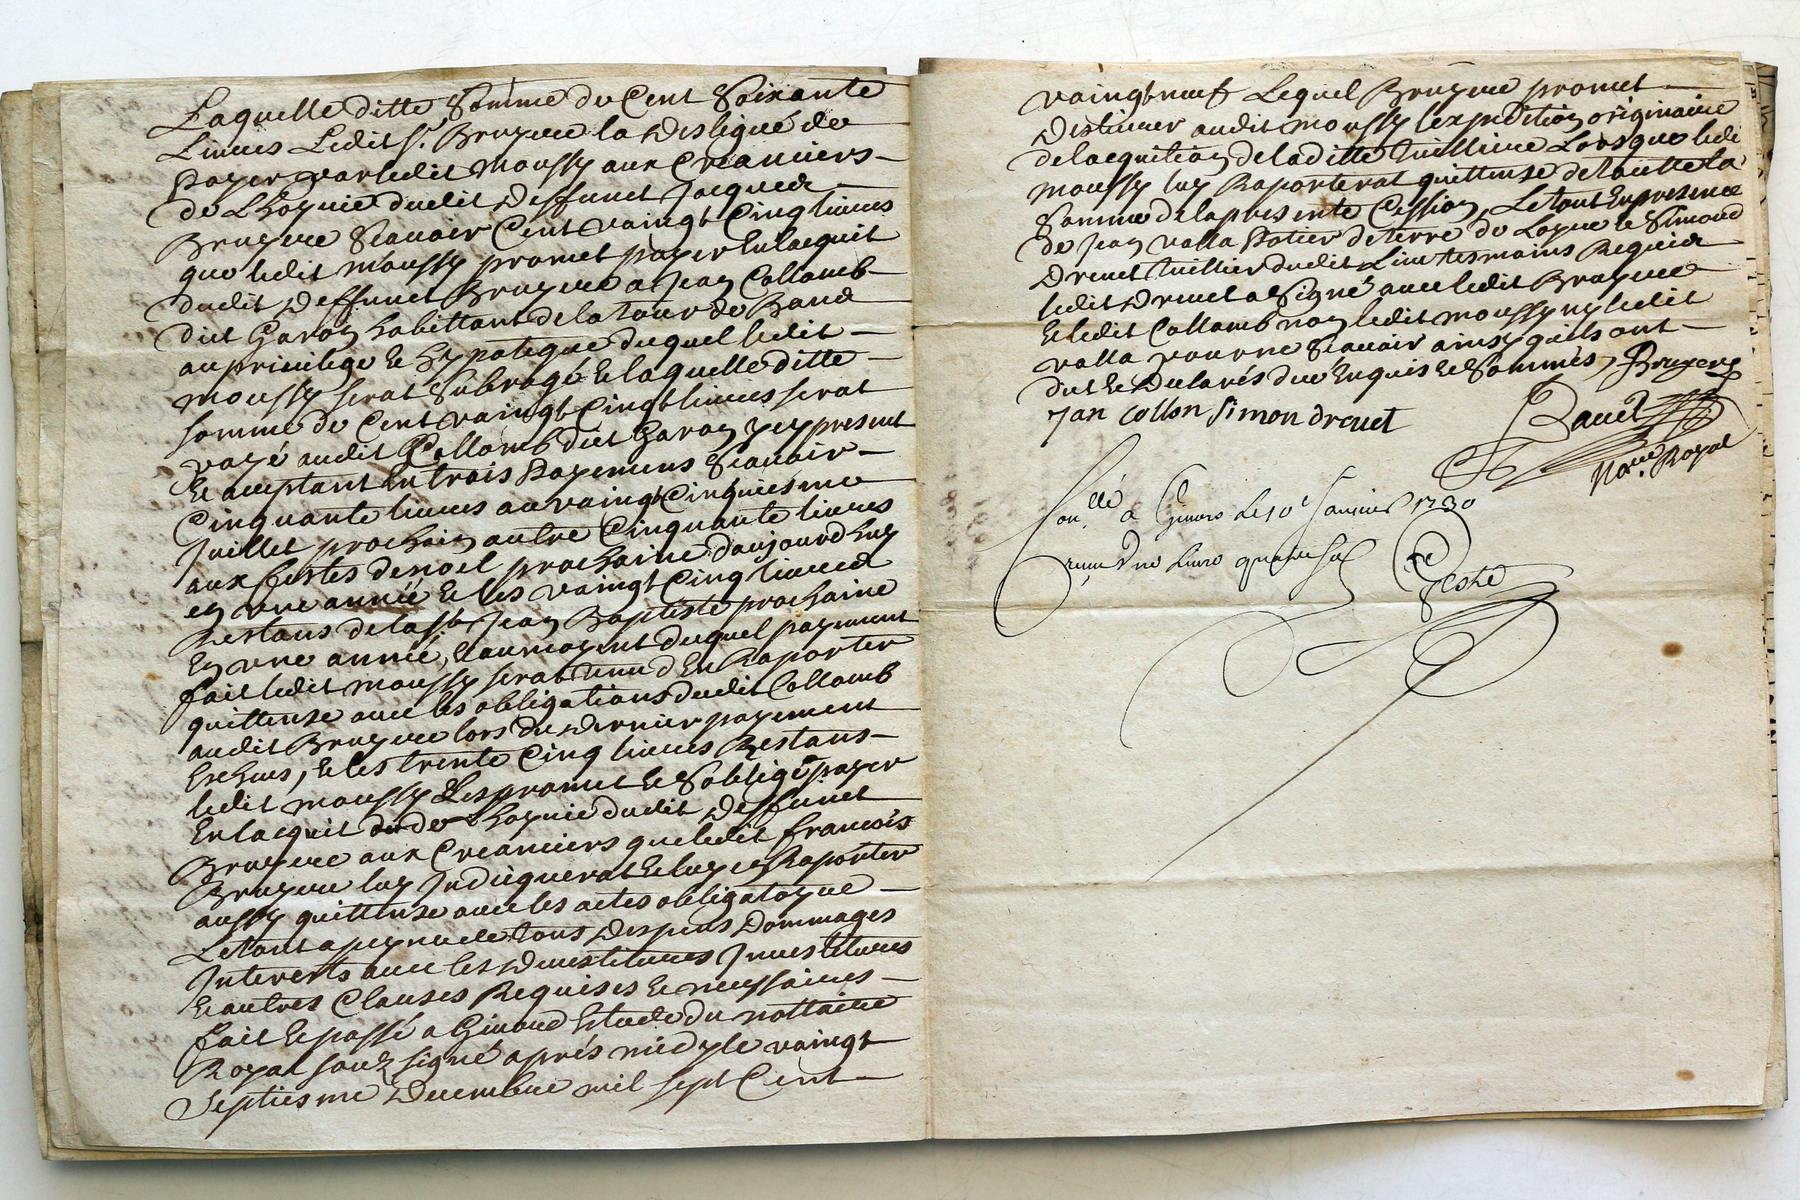 Laquelle ditte Somme de Cent Soixante
Livres Ledit Sr. Bruyere la desliguè de
payer par ledit moussy aux Creanciers
de Lhoyrie dudit deffunct Jacques
Bruyere Scavoir Cent vaingt Cinq livres
que ledit moussy promet payer En lacquit
dudit deffunct Bruyere a Jean Collomb
dit Garon habittant de la tour de
au privilege & hypoteque duquel ledit
moussy serat Subrogé & laquelle ditte
somme de Cent vaingt Cinqt livres serat
payé audit Collomb dit Garon yey present
& acceptant En trois payemens Scavoir
Cinquante livres au vaingt Cinquiesme
Juillet prochain autre Cinquante livres
aux festes de noel prochaine daujourdhuy
en une année & les vaingt Cinq livres
Restans de la st Jean Baptiste prochaine
En une année, & au moyent duquel payement
fait ledit moussy serat tenu d'En Raporter
quittense avec les obligations dudit Collomb
audit Bruyere lors du dernier payement
Escheus, & les trente Cinq livres Restans
ledit moussy Les promet & Soblige payer
En lacquit de Lhoyrie dudit deffunct
Bruyere aux Creanciers que ledit francois
Bruyere luy Indiquerat & luy en Raporter
aussy quittense avec les actes obligatoyre
Le tout a peyne de tous despens dommages
Interests avec les devestitures Investitures
& autres Clauses Requises & necessaires
fait & passé a Givord Estude du nottaire
Royal soubsigné aprés midy le vaingt
Septiesme decembre mil sept Cent
vaingt neuf Lequel Bruyere promet
audit moussy lexpedition originaire
de lacquition de la ditte tuilliere Lors que ledi
moussy luy Raporterat quittense de toutte la
Somme de la presente Cession, Le tout En presence
de Jean valla Potier de terre de & Simond
drevet tuillier dudit Lieu tesmoins Requis
ledit drevet a Signé avec ledit Bruyere
& ledit Collomb non ledit moussy ny ledit
valla pour ne Scavoir ainsy quils ont
dit & declarés de ce Enquis & Sommés, Bruyere
Jan collon simon drevet
Nore. Royal
Conllé a Givors Le 10e Janvier 1730
Receu une Livre quatre sol